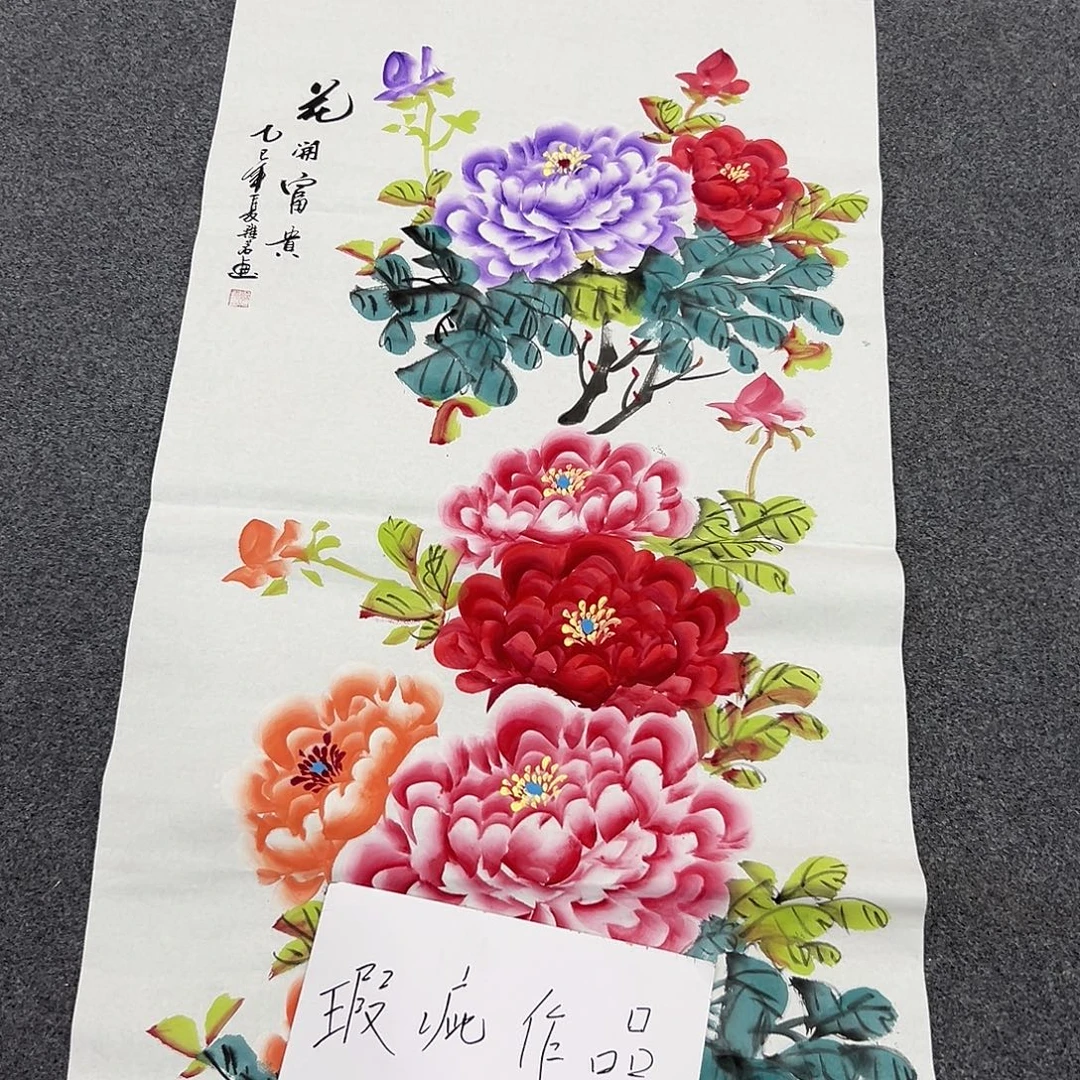 花開富貴
乙巳年夏雅君畫
瑕疵作品